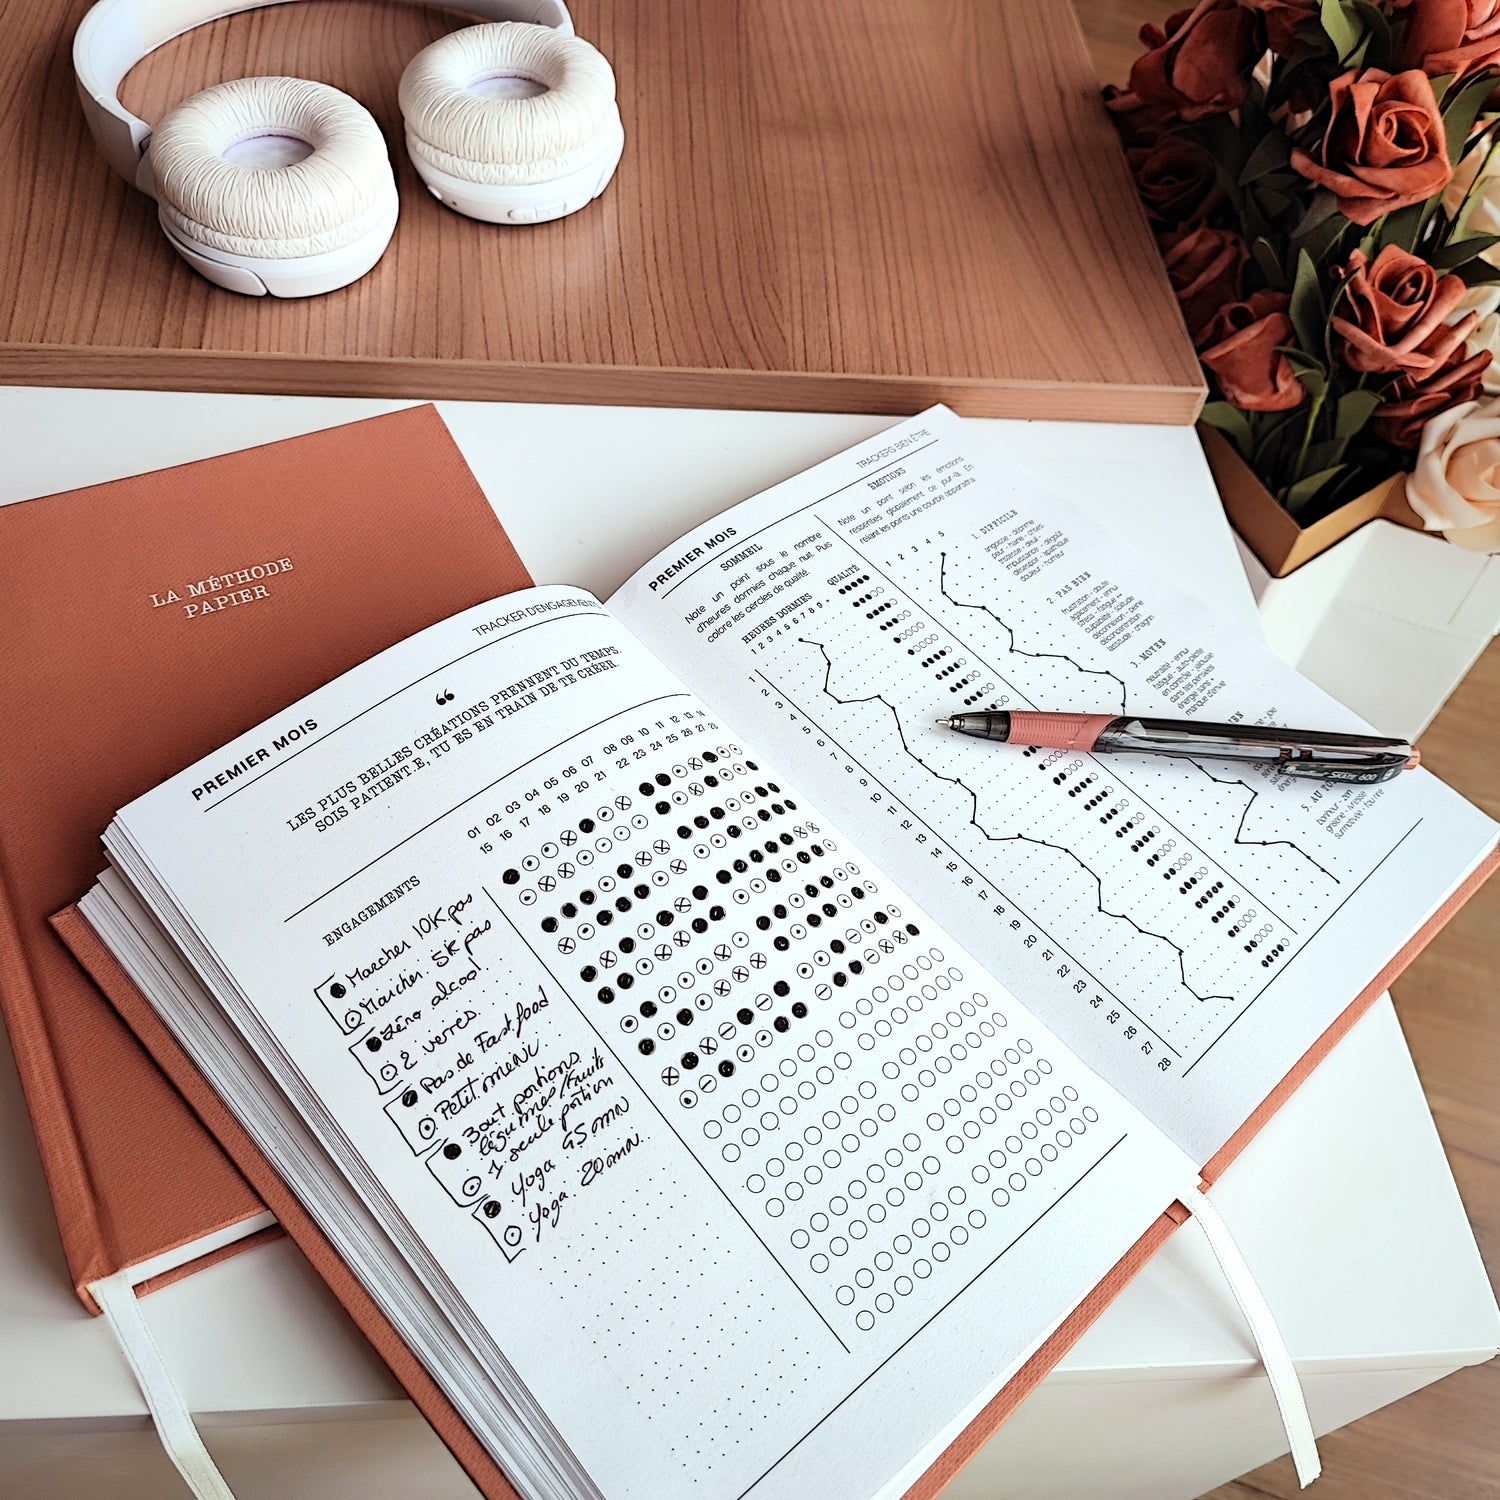 LA MÉTHODE
PAPIER
TRACKER D'ENGAGEMENTS
PREMIER MOIS
“
LES PLUS BELLES CRÉATIONS PRENNENT DU TEMPS.
SOIS PATIENT.E, TU ES EN TRAIN DE TE CRÉER.
01 02 03 04 05 06 07 08 09 10 11 12 13 14
15 16 17 18 19 20 21 22 23 24 25 26 27 28
ENGAGEMENTS
Marcher 10K pas
Marcher 5K pas
Zéro alcool
2 verres
Pas de Fast food
Petit menu
3 out portions
légumes/fruits
1 seule portion
Yoga 45 mn
Yoga 20 mn
TRACKERS BIEN-ÊTRE
PREMIER MOIS
SOMMEIL
Note un point sous le nombre
d'heures dormies chaque nuit. Puis
colore les cercles de qualité.
HEURES DORMIES
QUALITÉ
1 2 3 4 5 6 7 8 9 +
1
2
3
4
5
6
7
8
9
10
11
12
13
14
15
16
17
18
19
20
21
22
23
24
25
26
27
28
ÉMOTIONS
Note un point selon les émotions
ressenties globalement ce jour-là. En
reliant les points une courbe apparaîtra.
1 2 3 4 5
1. DIFFICILE
angoisse - déprime
peur - haine - crises
tristesse - deuil -
désespoir - apathique
douleur - horreur
2. PAS BIEN
frustration - doute
agacement - ennui
stress - fatigue ++
culpabilité - solitude
déconnexion - peine
déconcentration
lassitude - chagrin
3. MOYEN
neutralité - ennui
fatigue - auto-pilote
en contrôle - jalouse
dans tes pensées
énergie sans +
manque d'envie
IEN
5. AU TO
bonheur - zen
griserie - ivresse
surmotivée - fou rire
SKATE 600